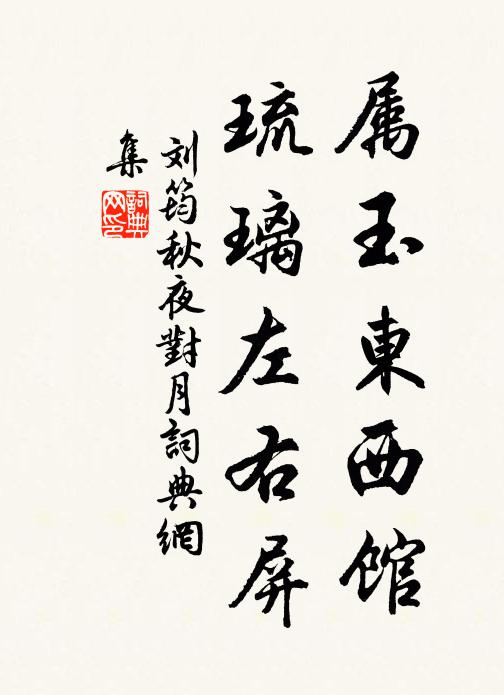 属玉東西館
琉璃左右屏
刘筠秋夜對月詞典網
集
詞典
网印